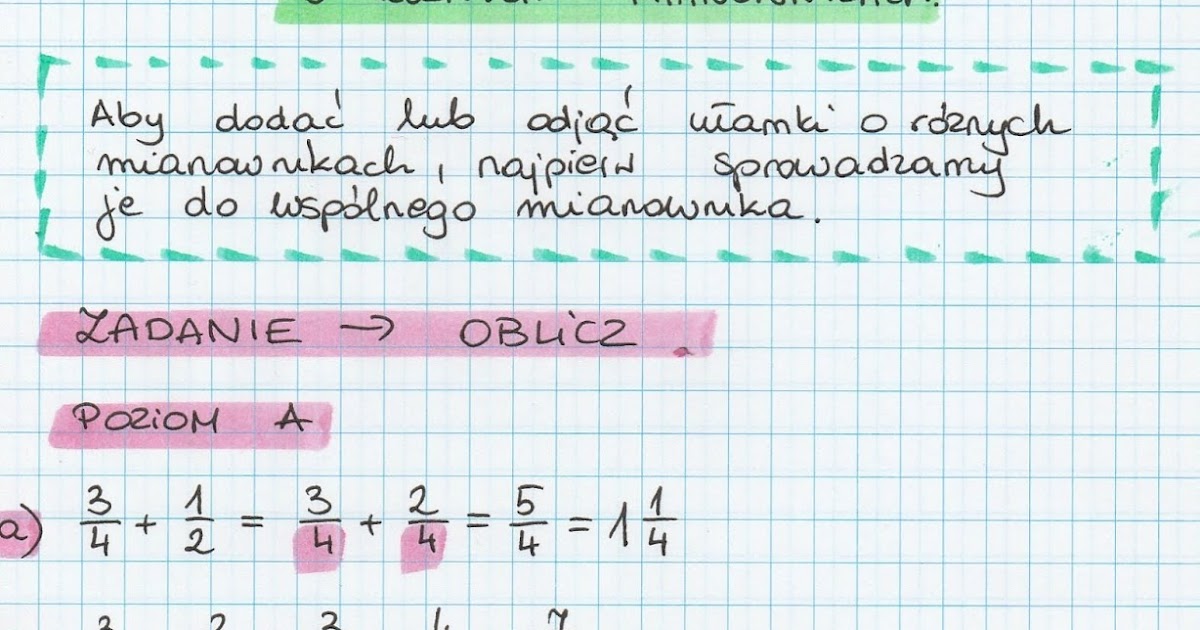 Aby dodać lub odjąć ułamki o różnych
mianownikach, najpierw sprowadzamy
je do wspólnego mianownika.
ZADANIE → OBLICZ
POZIOM A
a) 3/4 + 1/2 = 3/4 + 2/4 = 5/4 = 1 1/4